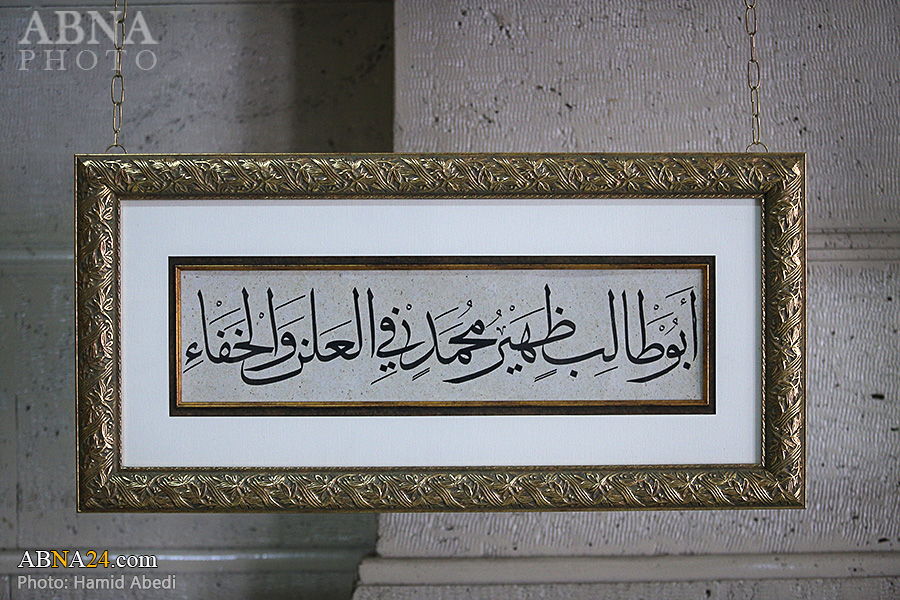 ABNA
PHOTO
أَبُو طَالِب ظَهِيرُ مُحَمَّدٍ فِي العَلَنِ وَالخَفَاءِ
ABNA24.com
Photo: Hamid Abedi